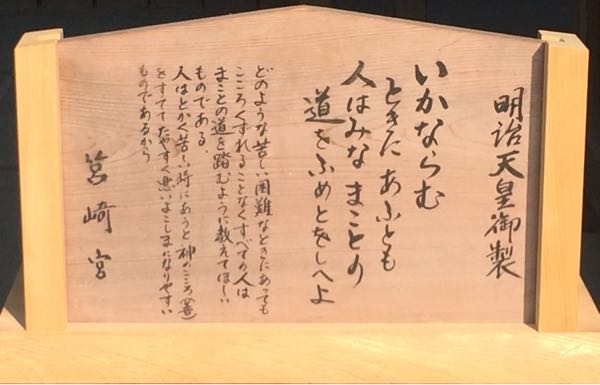 明治天皇御製
いかならむ
ときにあふとも
人はみなまことの
道をふめとをしへよ
どのような苦しい困難なときにあっても
こころくずれることなくすべての人は
まことの道を踏むように教えてほしい
ものである、
人はとかく苦しい時にあうと神のこころ(善)
をすててたやすく悪いよこしまになりやすい
ものであるから
筥崎宮